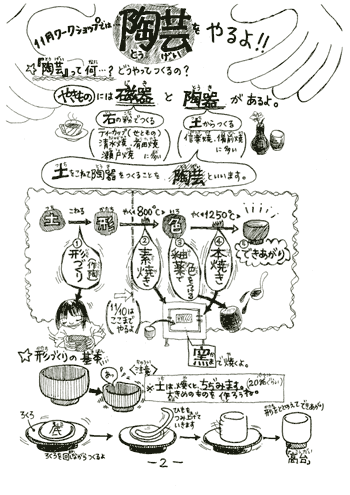 11月ワークショップでは
陶芸を やるよ!!
とうげい
☆『陶芸』って何…?どうやってつくるの?
やきものには磁器と陶器があるよ。
石の粉でつくる
ティーカップ(せともの)
清水焼・有田焼
瀬戸焼 に多い
土からつくる
信楽焼、備前焼
に多い
土をこねて陶器をつくることを 陶芸といいます。
土 こねる 形 やく 約800℃ 色 やく 約1250℃
①形づくり(作陶)
②素焼き
③釉薬で色をつける
④本焼き
できあがり
11/10は
ここまで
やるよ
窯で焼くよ。
☆形づくりの基本
※土は、焼くと、ちぢみます。(20%くらい)
大きめのものを作ろうね。
ろくろ
底
ろくろを回しながらつくるよ
ひもを
つみ上げて
いきます
形をととのえてできあがり
「高台」
-2-